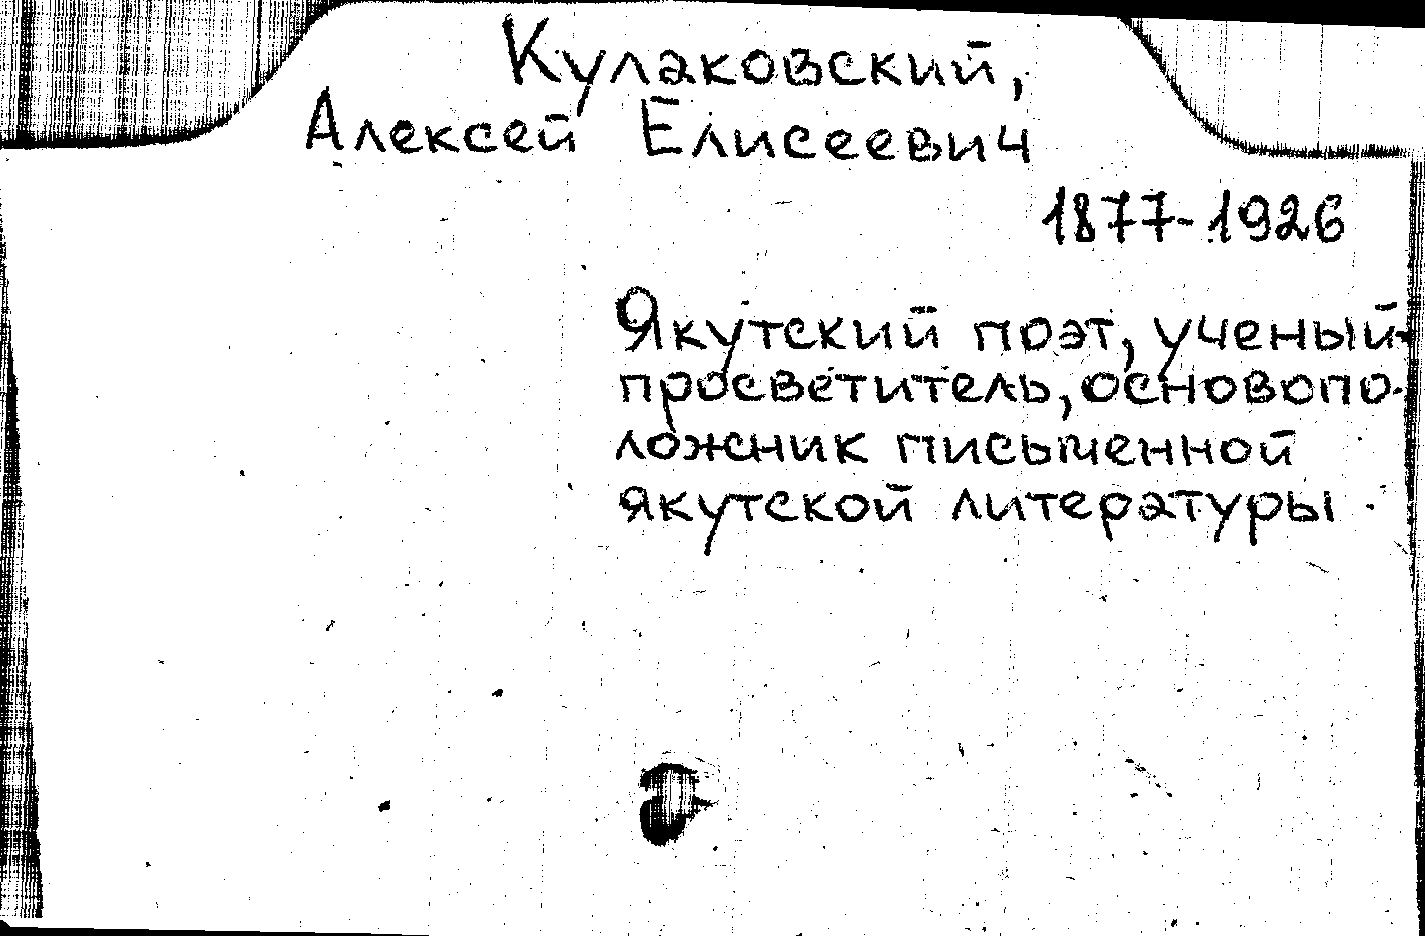 Кулаковский,
Алексей Елисеевич
1877-1926
Якутский поэт, ученый-
просветитель, основопо-
ложник письменной
якутской литературы.